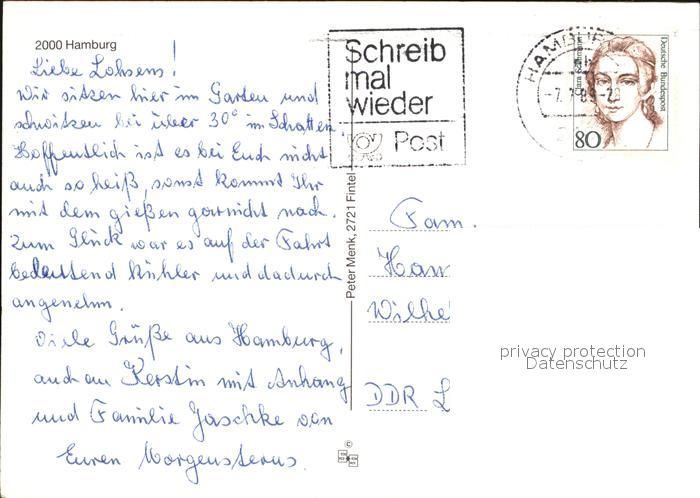 2000 Hamburg
Liebe Lohsens!
Wir sitzen hier im Garten und
schwitzen bei über 30° im Schatten.
Hoffentlich ist es bei Euch nicht
auch so heiß, sonst kommt Ihr
mit dem gießen garnicht nach.
Zum Glück war es auf der Fahrt
bedeutend kühler und dadurch
angenehm.
Viele Grüße aus Hamburg,
auch an Kerstin mit Anhang
und Familie Jaschke von
Euren Morgensterns.
Peter Menk, 2721 Fintel
Schreib
mal
wieder
Post
HAMBU
Deutsche Bundespost
80
Fam.
Han
Wilhe
DDR L
privacy protection
Datenschutz
©